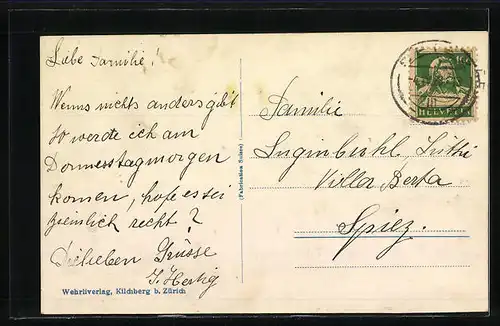 Liebe Familie!
Wenns nichts anders gibt
so werde ich am
Donnerstagmorgen
komen, hofe es sei
ziemlich recht?
Die lieben Grüsse
J. Hertig
Wehrliverlag, Kilchberg b. Zürich
(Fabrication Suisse)
10
HELVETIA
Familie
Luginbühl,
Villa Berta
Spiez.